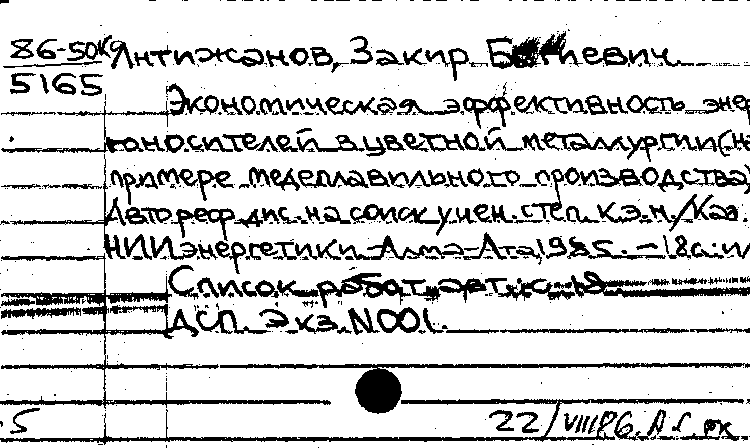 86-50к Янтижанов, Закир
5165
Экономическая эффективность энер
гоносителей в цветной металлургии (на
примере медеплавильного производства)
Автореф. дис. на соиск. учен. степ. к.э.н. / Каз.
НИИ энергетики. - Алма-Ата, 1985. - 18с.: ил
Список работ авт.: с. 18
ДСП. Экз. N001.
5
22/VIII86. А.С. рк